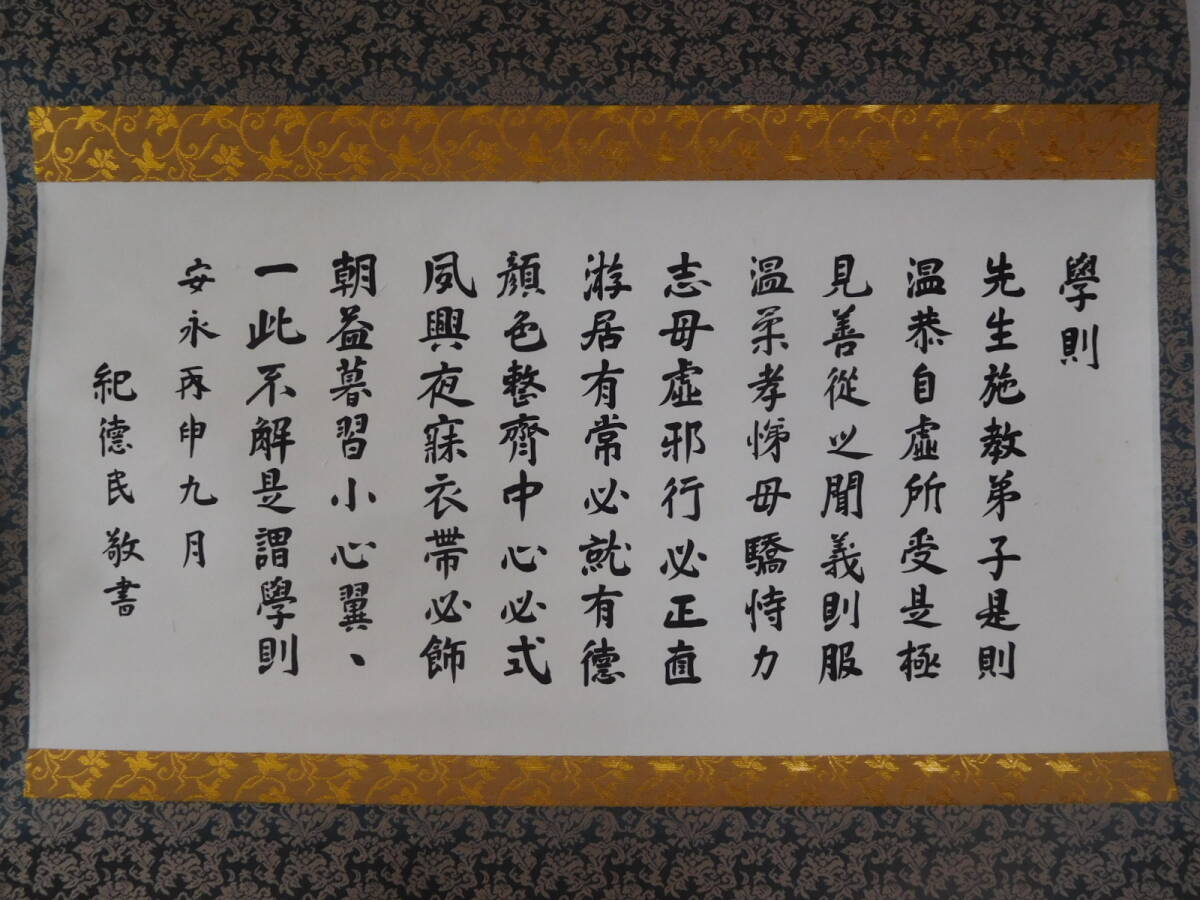 學則
先生施教弟子是則
温恭自虛所受是極
見善從之聞義則服
温柔孝悌毋驕恃力
志毋虛邪行必正直
游居有常必就有德
顏色整齊中心必式
夙興夜寐衣帶必飾
朝益暮習小心翼、
一此不解是謂學則
安永丙申九月
紀德民敬書